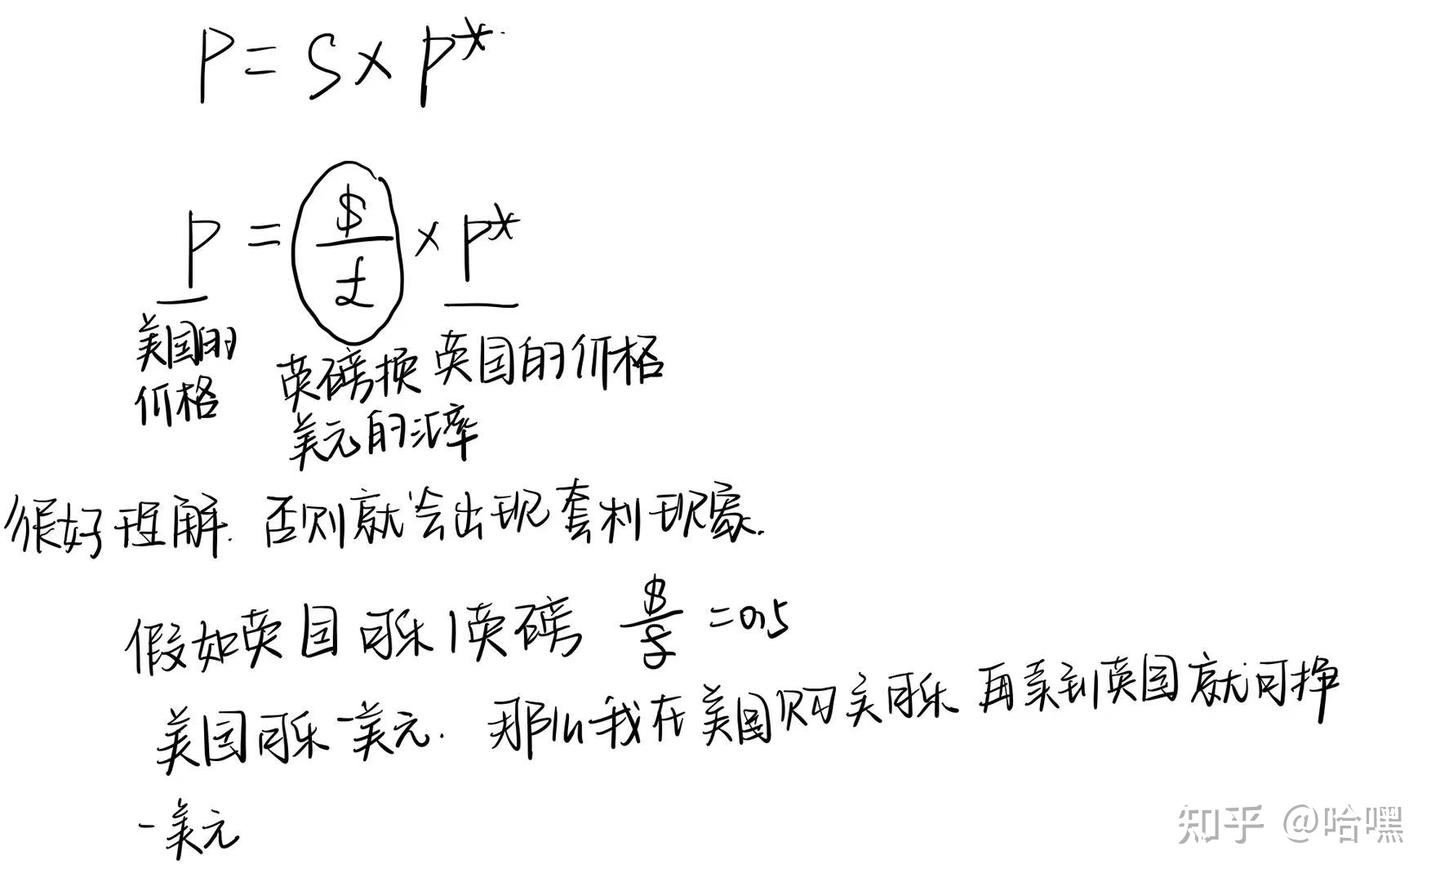 P = S × P*
P = $/£ × P*
美国的
价格
英镑换
美元的汇率
英国的价格
很好理解. 否则就会出现套利现象.
假如英国可乐1英镑 $/£ =0.5
美国可乐一美元. 那么我在美国购买可乐 再卖到英国就可挣
一美元
知乎 @哈嘿